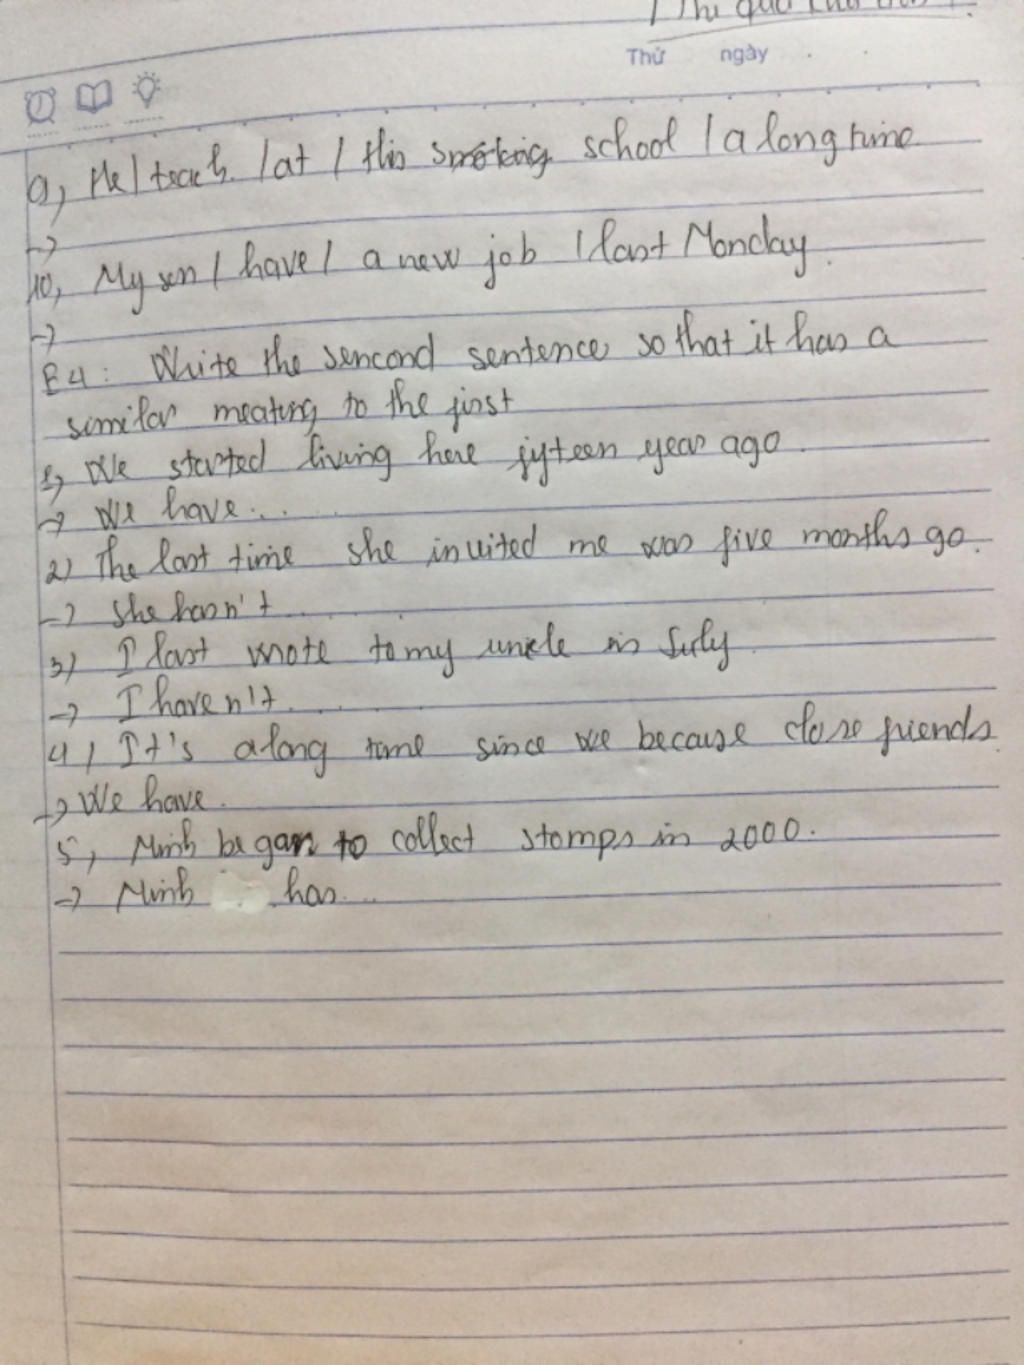 Thứ ngày
9, He / teach / at / this smoking school / a long time
->
10, My son / have / a new job / last Monday.
->
E4: Write the sencond sentence so that it has a
similar meating to the first
1, We started living here fifteen year ago.
-> We have...
2) The last time she invited me was five months go.
-> she hasn't...
3) I last wrote to my uncle in July.
-> I haven't....
4) It's a long time since we because close friends.
-> We have.
5, Minh began to collect stamps in 2000.
-> Minh has...